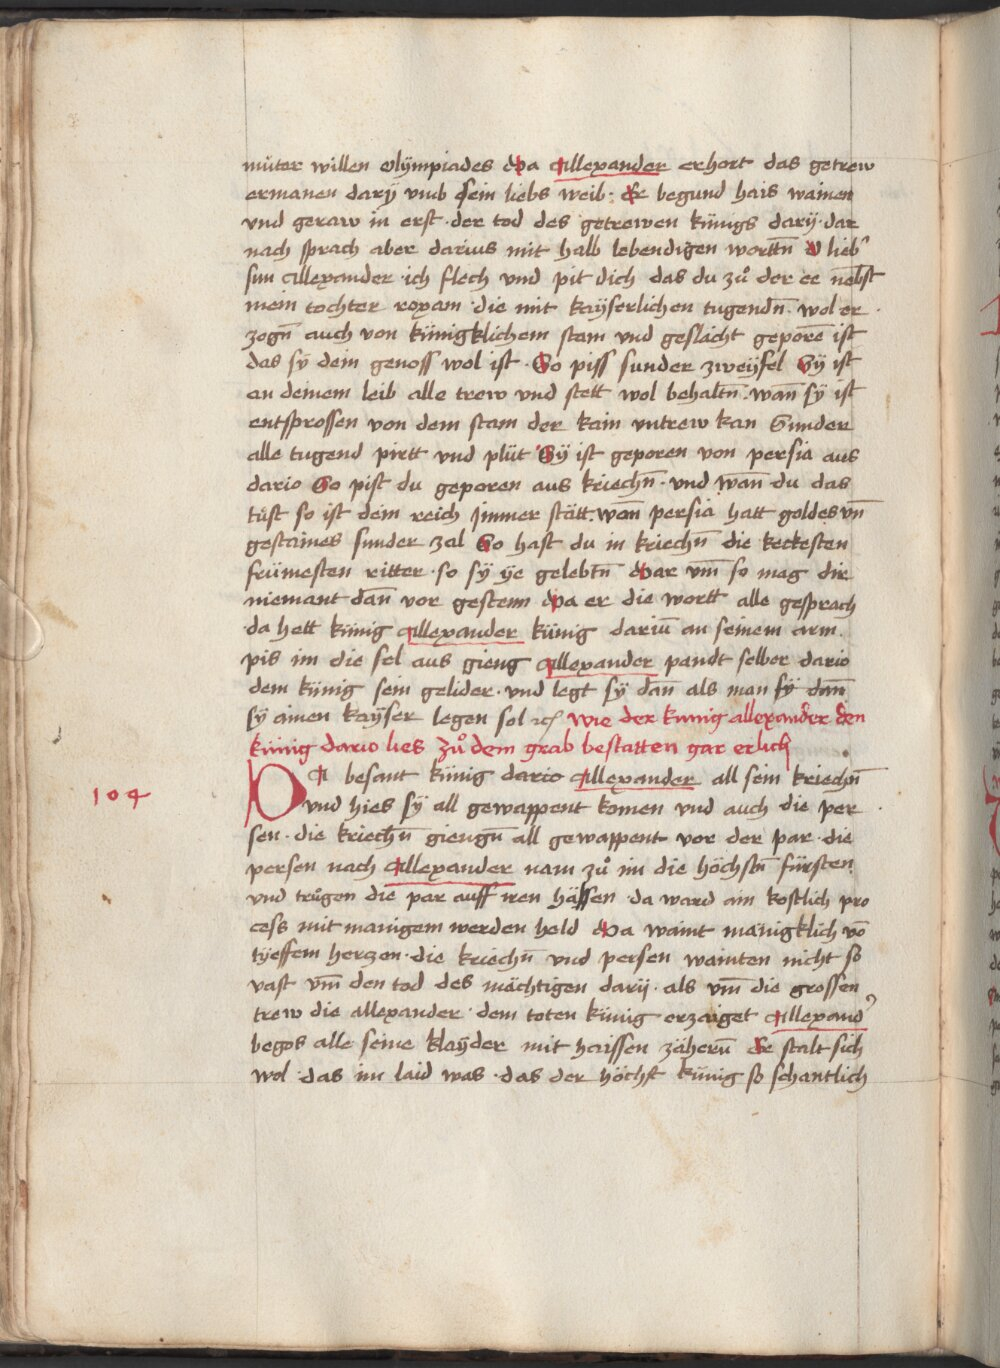 můter willen olÿmpiades Da Allexander erhort das getrew
ermanen darÿ vmb sein liebs weib · Er begund hais wainen
vnd geraw in erst · der tod des getrewen künigs darÿ · dar
nach sprach aber darius mit halb lebendigen worttn̄ O lieb'
sun Allexander · ich flech vnd pit dich das du zů der ee nebst
mein tochter roxam · die mit kaÿserlichen tugendn̄ · wol er
zogn̄ auch von künigklichem stam vnd geslächt geporē ist
das sÿ dein genoss wol ist · So piss sunder zweÿfel Sÿ ist
an deinem leib alle trew vnd stett wol behaltn̄ · wan̄ sÿ ist
entsprossen von dem stam der kain vntrew kan Sunder
alle tugend pirtt vnd plüt Sÿ ist geporen von persia aus
dario So pist du geporen aus kriechn̄ · vnd wan̄ du das
tůst so ist dem reich jmmer stätt wan̄ persia hatt goldes vn̄
gestaines sunder zal So hast du in kriechn̄ die keckesten
frümesten ritter · so sÿ ÿe gelebtn̄ Dar vm̄ so mag dir
niemant dan̄ vor gestenn Da er die wortt alle gesprach
da hett künig Allexander künig dariū an seinem arm
pis im die sel aus gieng Allexander pandt selber dario
dem künig sein gelider · vnd legt sÿ dan̄ als man sÿ dan̄
sÿ ainen kaÿser legen sol ꝛc̃ wie der kunig allexander den
künig dario lies zů dem grab bestatten gar erlich
DA besant künig dario Allexander all sein kriechn̄
104
vnd hies sÿ all gewappent komen vnd auch die per
sen · die kriechn̄ giengn̄ all gewappent vor der par · die
persen nach Allexander nam zů im die höchstn̄ fürsten
vnd trůgen die par auff iren hässen da ward ain kostlich pro
cess mit manigem werden held Da waint mänigklich vō
tÿeffem herczen · die kriechn̄ vnd persen wainten nicht so
vast vm̄ den tod des mächtigen darÿ · als vm̄ die grossen
trew die allexander · dem toten künig erzaiget Allexand'
begos alle seine klaÿder mit haissen zähern̄ Er stalt sich
wol · das im laid was · das der höchst künig so schantlich